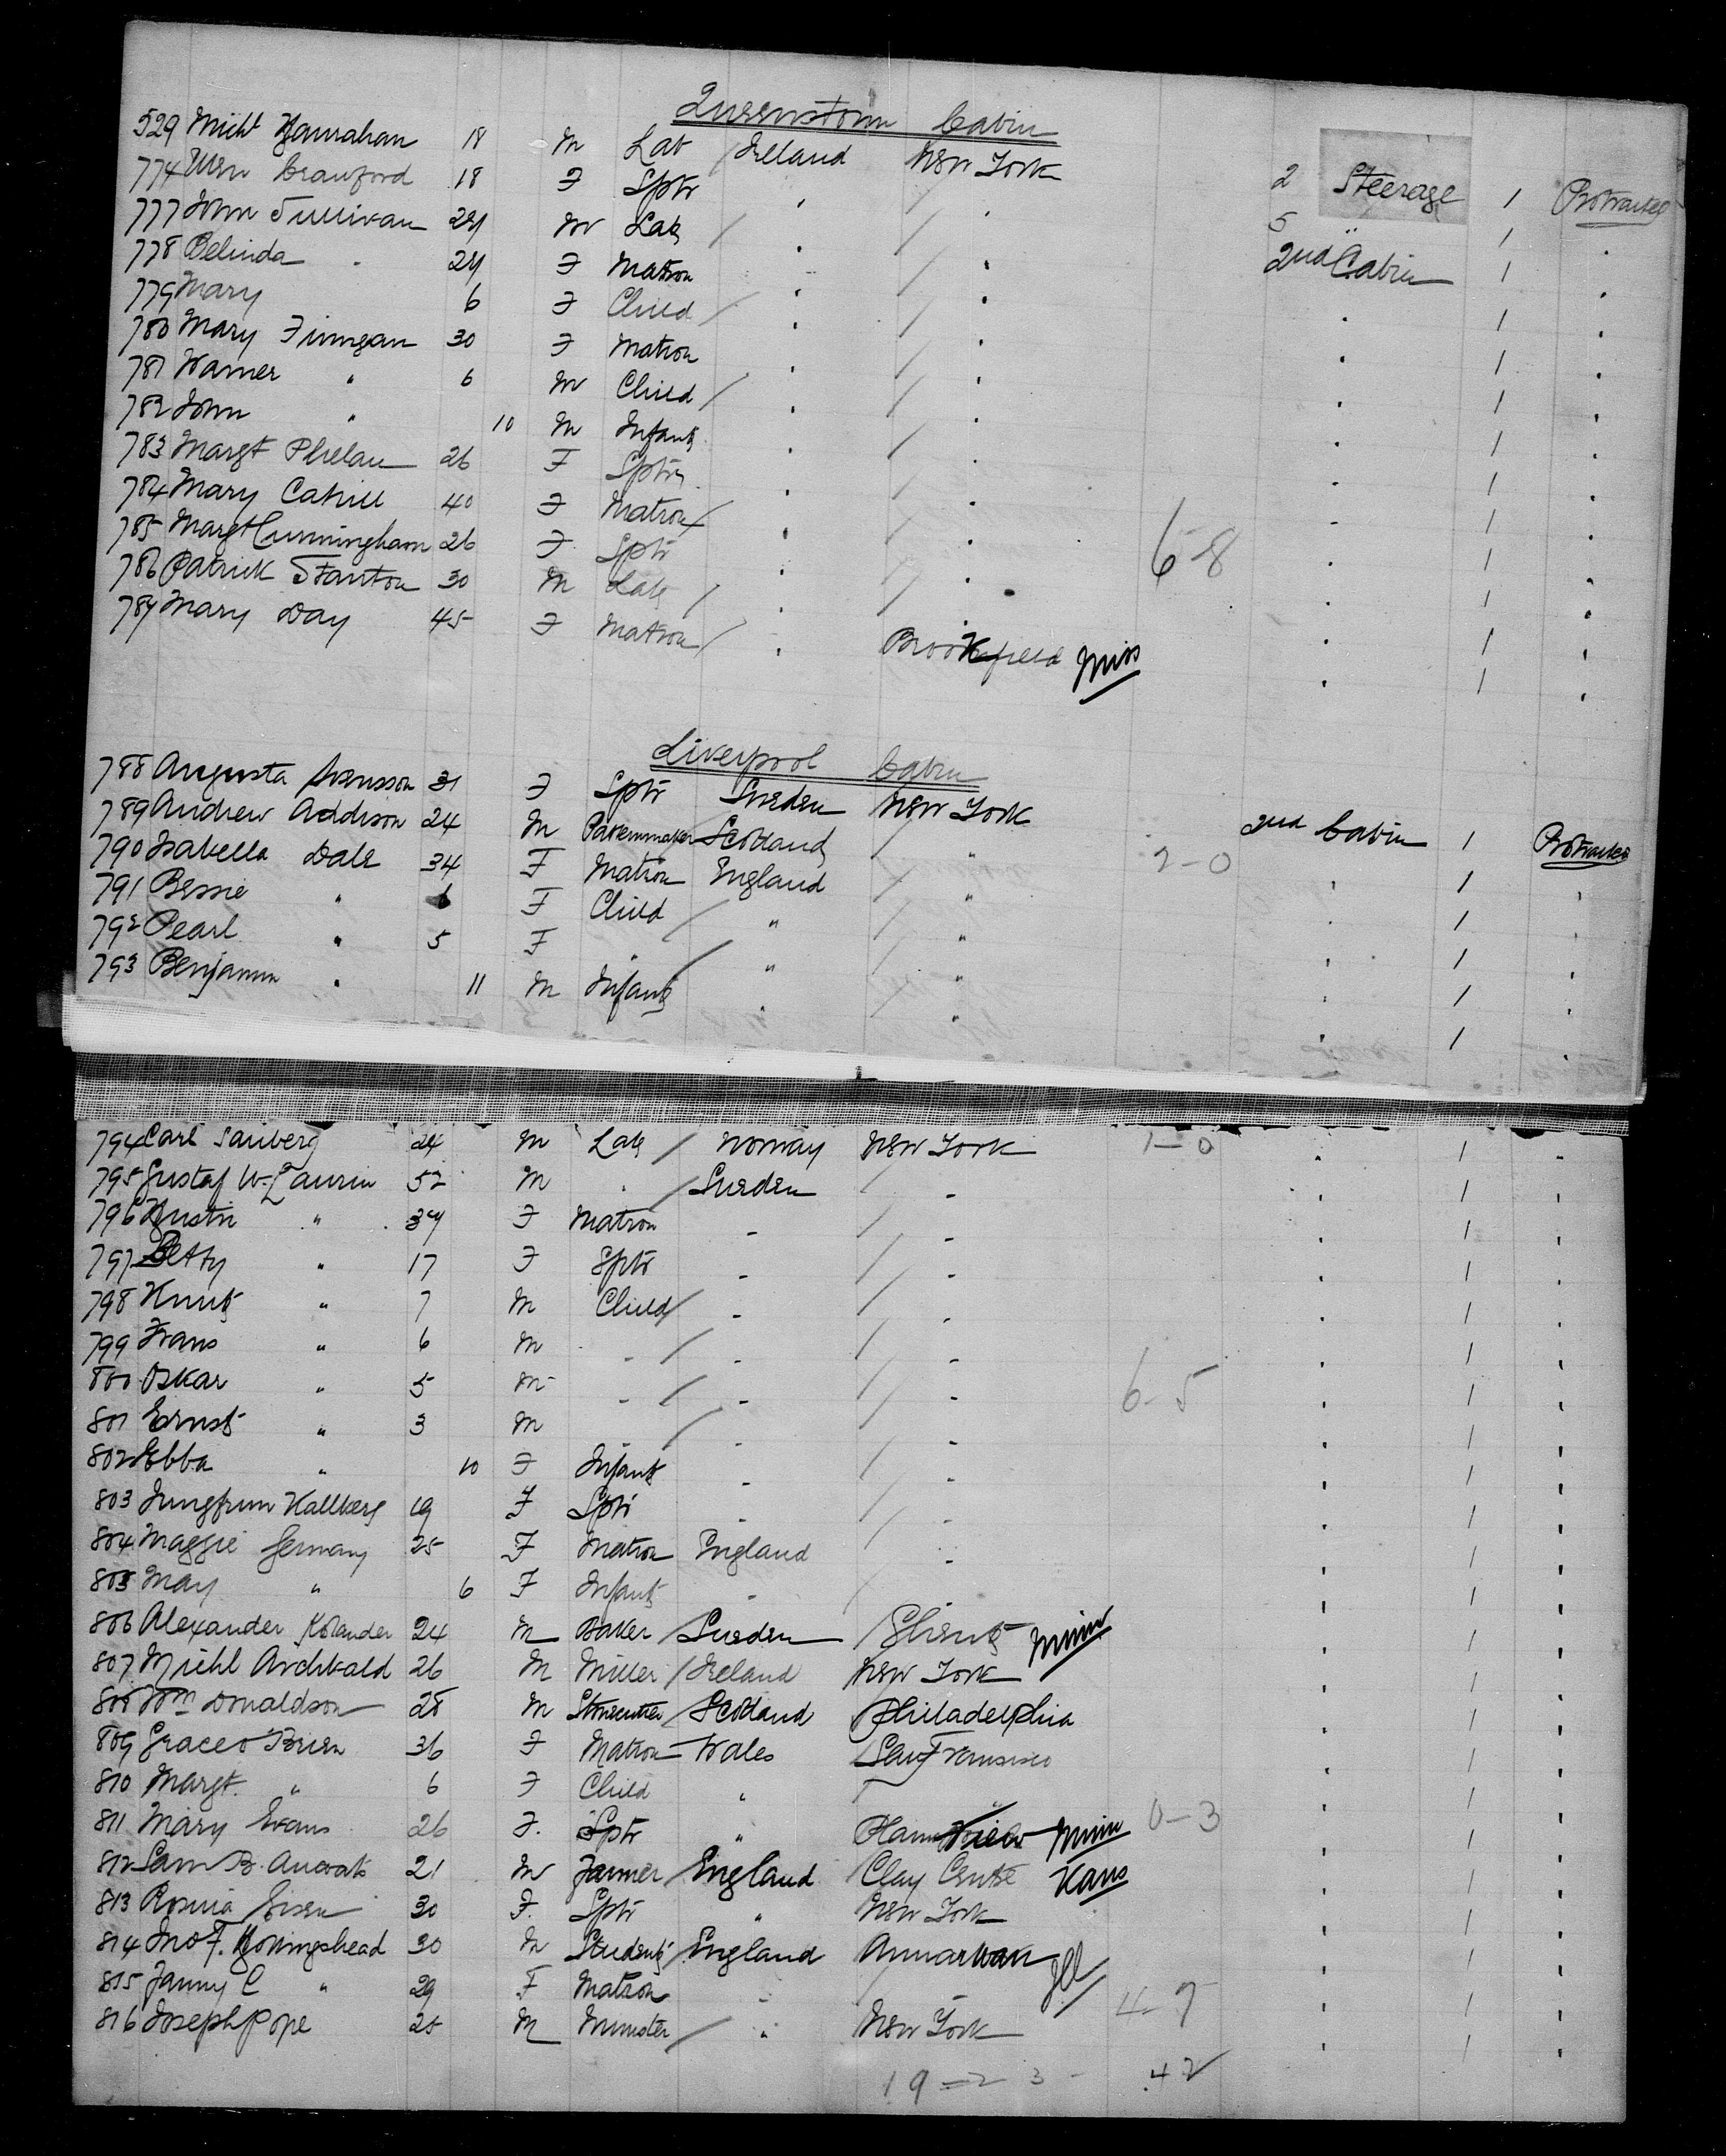 Queenstown Cabin
529 Michl Hanrahan 18 M Lab / Ireland New York 2 Steerage 1 Protracted
774 Crawford 18 F Sptr . / . 5 " 1 .
777 John Sullivan 24 M Lab / . / . 2nd Cabin 1 .
778 Belinda . 24 F Matron . / . . 1 .
779 Mary 6 F Child / . / . . 1 .
780 Mary Finnigan 30 F Matron . / . . 1 .
781 Warner " 6 M Child / . / . . 1 .
782 John " 10 M Infant . / . . 1 .
783 Margt Phelan 26 F Sptr . / . . 1 .
784 Mary Cahill 40 F Matron / . / . . 1 .
785 Margt Cunningham 26 F Sptr . / . 6-8 . 1 .
786 Patrick Stanton 30 M Lab / . / . . 1 .
787 Mary Day 45 F Matron / . Brookfield Miss . 1 .
Liverpool Cabin
788 Augusta Svensson 31 F Sptr Sweden New York 2nd Cabin 1 Protracted
789 Andrew Addison 24 M Patternmaker Scotland / " . 1 .
790 Isabella Dale 34 F Matron England / " 2-0 . 1 .
791 Bessie " 6 F Child / " / " . 1 .
792 Pearl " 5 F . / " / " . 1 .
793 Benjamin " 11 M Infant " / " . 1 .
794 Carl Sanberg 24 M Lab / Norway New York 1-0 . 1 .
795 Gustaf W. Laurin 52 M . / Sweden / " . 1 .
796 " 34 F Matron " / " . 1 .
797 Betty " 17 F Sptr " / " . 1 .
798 Knut " 7 M Child / " / " . 1 .
799 Frans " 6 M " / " / " . 1 .
800 Oskar " 5 M " / " / " 6-5 . 1 .
801 Ernst " 3 M " / " / " . 1 .
802 Ebba " 10 F Infant " / " . 1 .
803 Jungfrun Kallberg 19 F Sptr " / " . 1 .
804 Maggie Germany 25 F Matron England / " . 1 .
805 May " 6 F Infant " / " . 1 .
806 Alexander 24 M Baker / Sweden / Minn . 1 .
807 Michl Archbald 26 M Miller / Ireland New York . 1 .
808 Wm Donaldson 28 M Stonecutter / Scotland Philadelphia . 1 .
809 Grace O'Brien 36 F Matron Wales San Fransisco . 1 .
810 Margt. " 6 F Child " " . 1 .
811 Mary Evans 26 F. Sptr " Plainview Minn 0-3 . 1 .
812 Sam B. 21 M Farmer / England Clay Centre Kans . 1 .
813 Rosina 30 F. Sptr " New York . 1 .
814 Jno F. Hollingshead 30 M Student / England Annawan Ill . 1 .
815 Fanny C " 29 F Matron " / 4-7 . 1 .
816 Joseph Pope 25 M Minister / " New York . 1 .
19 = 23 - 42